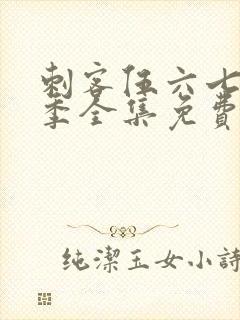 刺客伍六七
季全集免費
纯潔玉女小詩